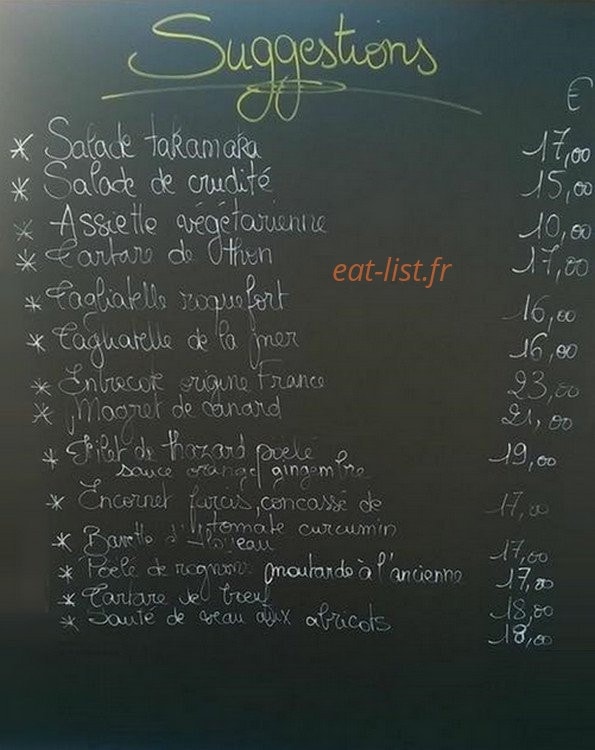 Suggestions
€
* Salade takamaka 17,00
* Salade de crudité 15,00
* Assiette végétarienne 10,00
* Tartare de thon 17,00
eat-list.fr
* Tagliatelle roquefort 16,00
* Tagliatelle de la mer 16,00
* Entrecote origine France 23,00
* Magret de canard 21,00
* Filet de thazard poelé 19,00
sauce orange gingembre
* Encornet farcis, concassé de 17,00
tomate curcumin
* Bavette d'Aloyau 17,00
* Poêlé de rognons moutarde à l'ancienne 17,80
* Tartare de bœuf 18,00
* Sauté de veau aux abricots 18,00